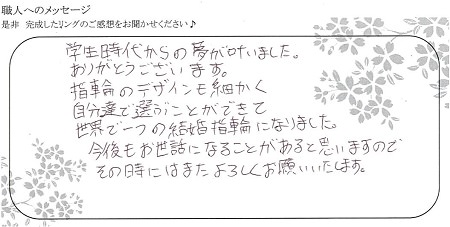 職人へのメッセージ
是非 完成したリングのご感想をお聞かせください♪
学生時代からの夢が叶いました。
ありがとうございます。
指輪のデザインも細かく
自分達で選ぶことができて
世界で一つの結婚指輪になりました。
今後もお世話になることがあると思いますので
その時にはまたよろしくお願いいたします。